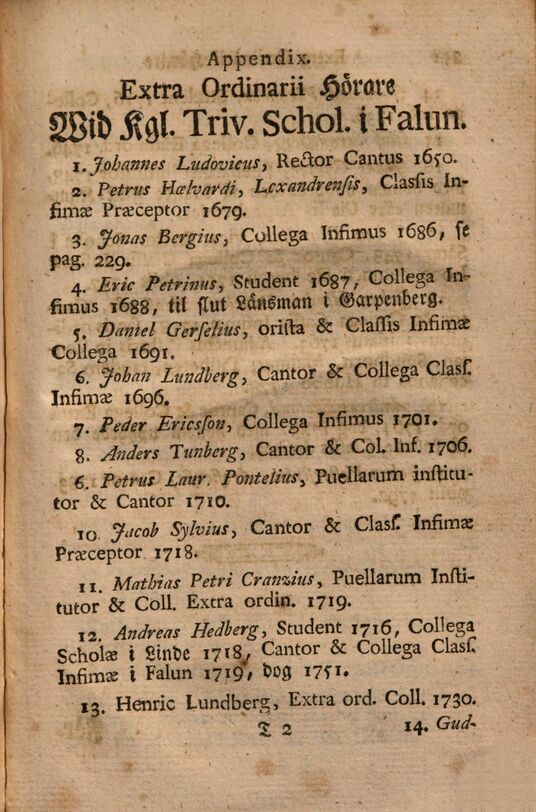 Appendix.
Extra Ordinarii Hörare
Wid Kgl. Triv. Schol. i Falun.
1. Johannes Ludovicus, Rector Cantus 1650.
2. Petrus Hælvardi, Lexandrenſis, Claſſis In-
fimæ Præceptor 1679.
3. Jonas Bergius, Collega Infimus 1686, ſe
pag. 229.
4. Eric Petrinus, Student 1687, Collega In-
fimus 1688, til ſlut Länsman i Garpenberg.
5. Daniel Gerſelius, oriſta & Claſſis Infimæ
Collega 1691.
6. Johan Lundberg, Cantor & Collega Claſſ.
Infimæ 1696.
7. Peder Ericsſon, Collega Infimus 1701.
8. Anders Tunberg, Cantor & Col. Inf. 1706.
6. Petrus Laur. Pontelius, Puellarum inſtitu-
tor & Cantor 1710.
10 Jacob Sylvius, Cantor & Claſſ. Infimæ
Præceptor 1718.
11. Mathias Petri Cranzius, Puellarum Inſti-
tutor & Coll. Extra ordin. 1719.
12. Andreas Hedberg, Student 1716, Collega
Scholæ i Linde 1718, Cantor & Collega Claſſ.
Infimæ i Falun 1719, dog 1751.
13. Henric Lundberg, Extra ord. Coll. 1730.
T 2 14. Gud-